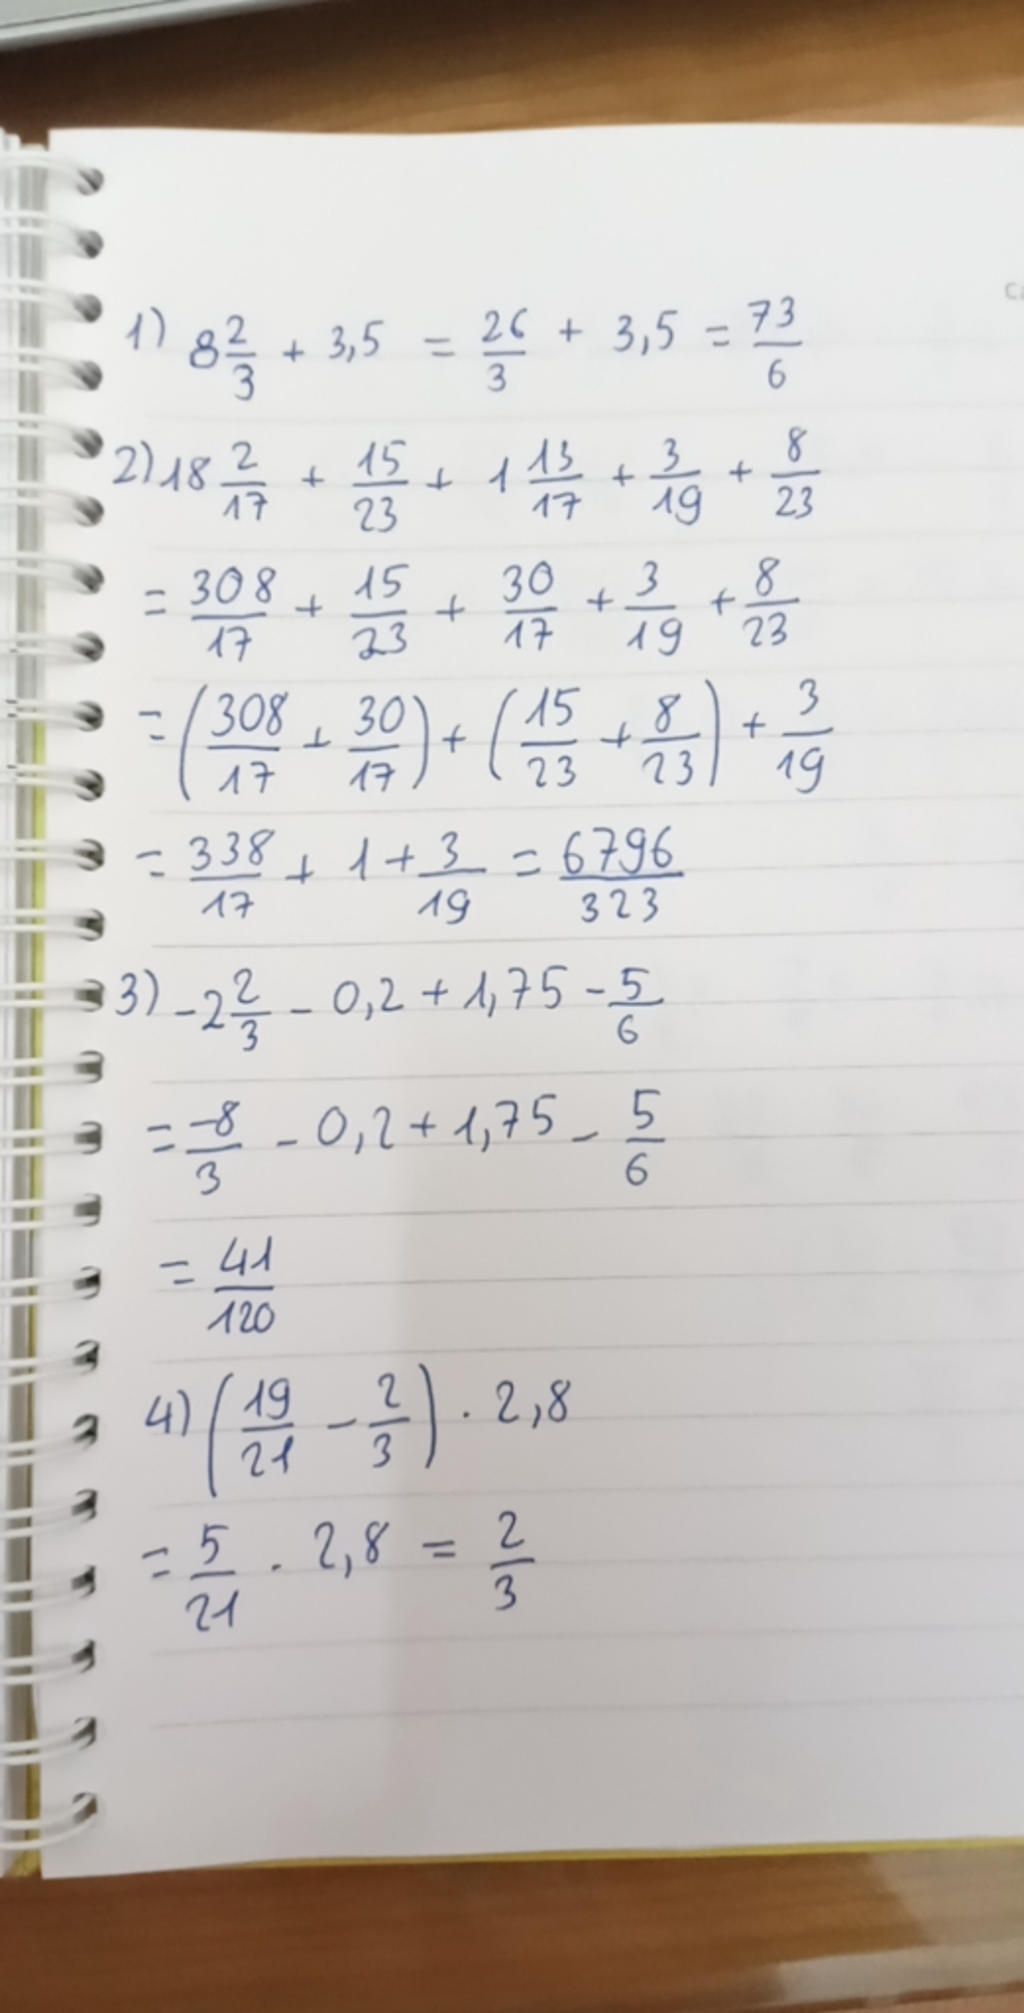 1) 8 2/3 + 3,5 = 26/3 + 3,5 = 73/6
2) 18 2/17 + 15/23 + 1 13/17 + 3/19 + 8/23
= 308/17 + 15/23 + 30/17 + 3/19 + 8/23
= (308/17 + 30/17) + (15/23 + 8/23) + 3/19
= 338/17 + 1 + 3/19 = 6796/323
3) -2 2/3 - 0,2 + 1,75 - 5/6
= -8/3 - 0,2 + 1,75 - 5/6
= 41/120
4) (19/21 - 2/3) . 2,8
= 5/21 . 2,8 = 2/3